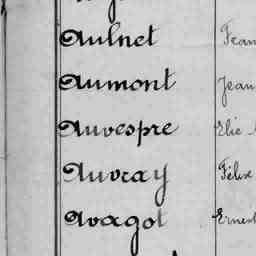 Aulnet
Aumont Jean
Auvespre Elie
Auvray Félix
Avagot Ernest